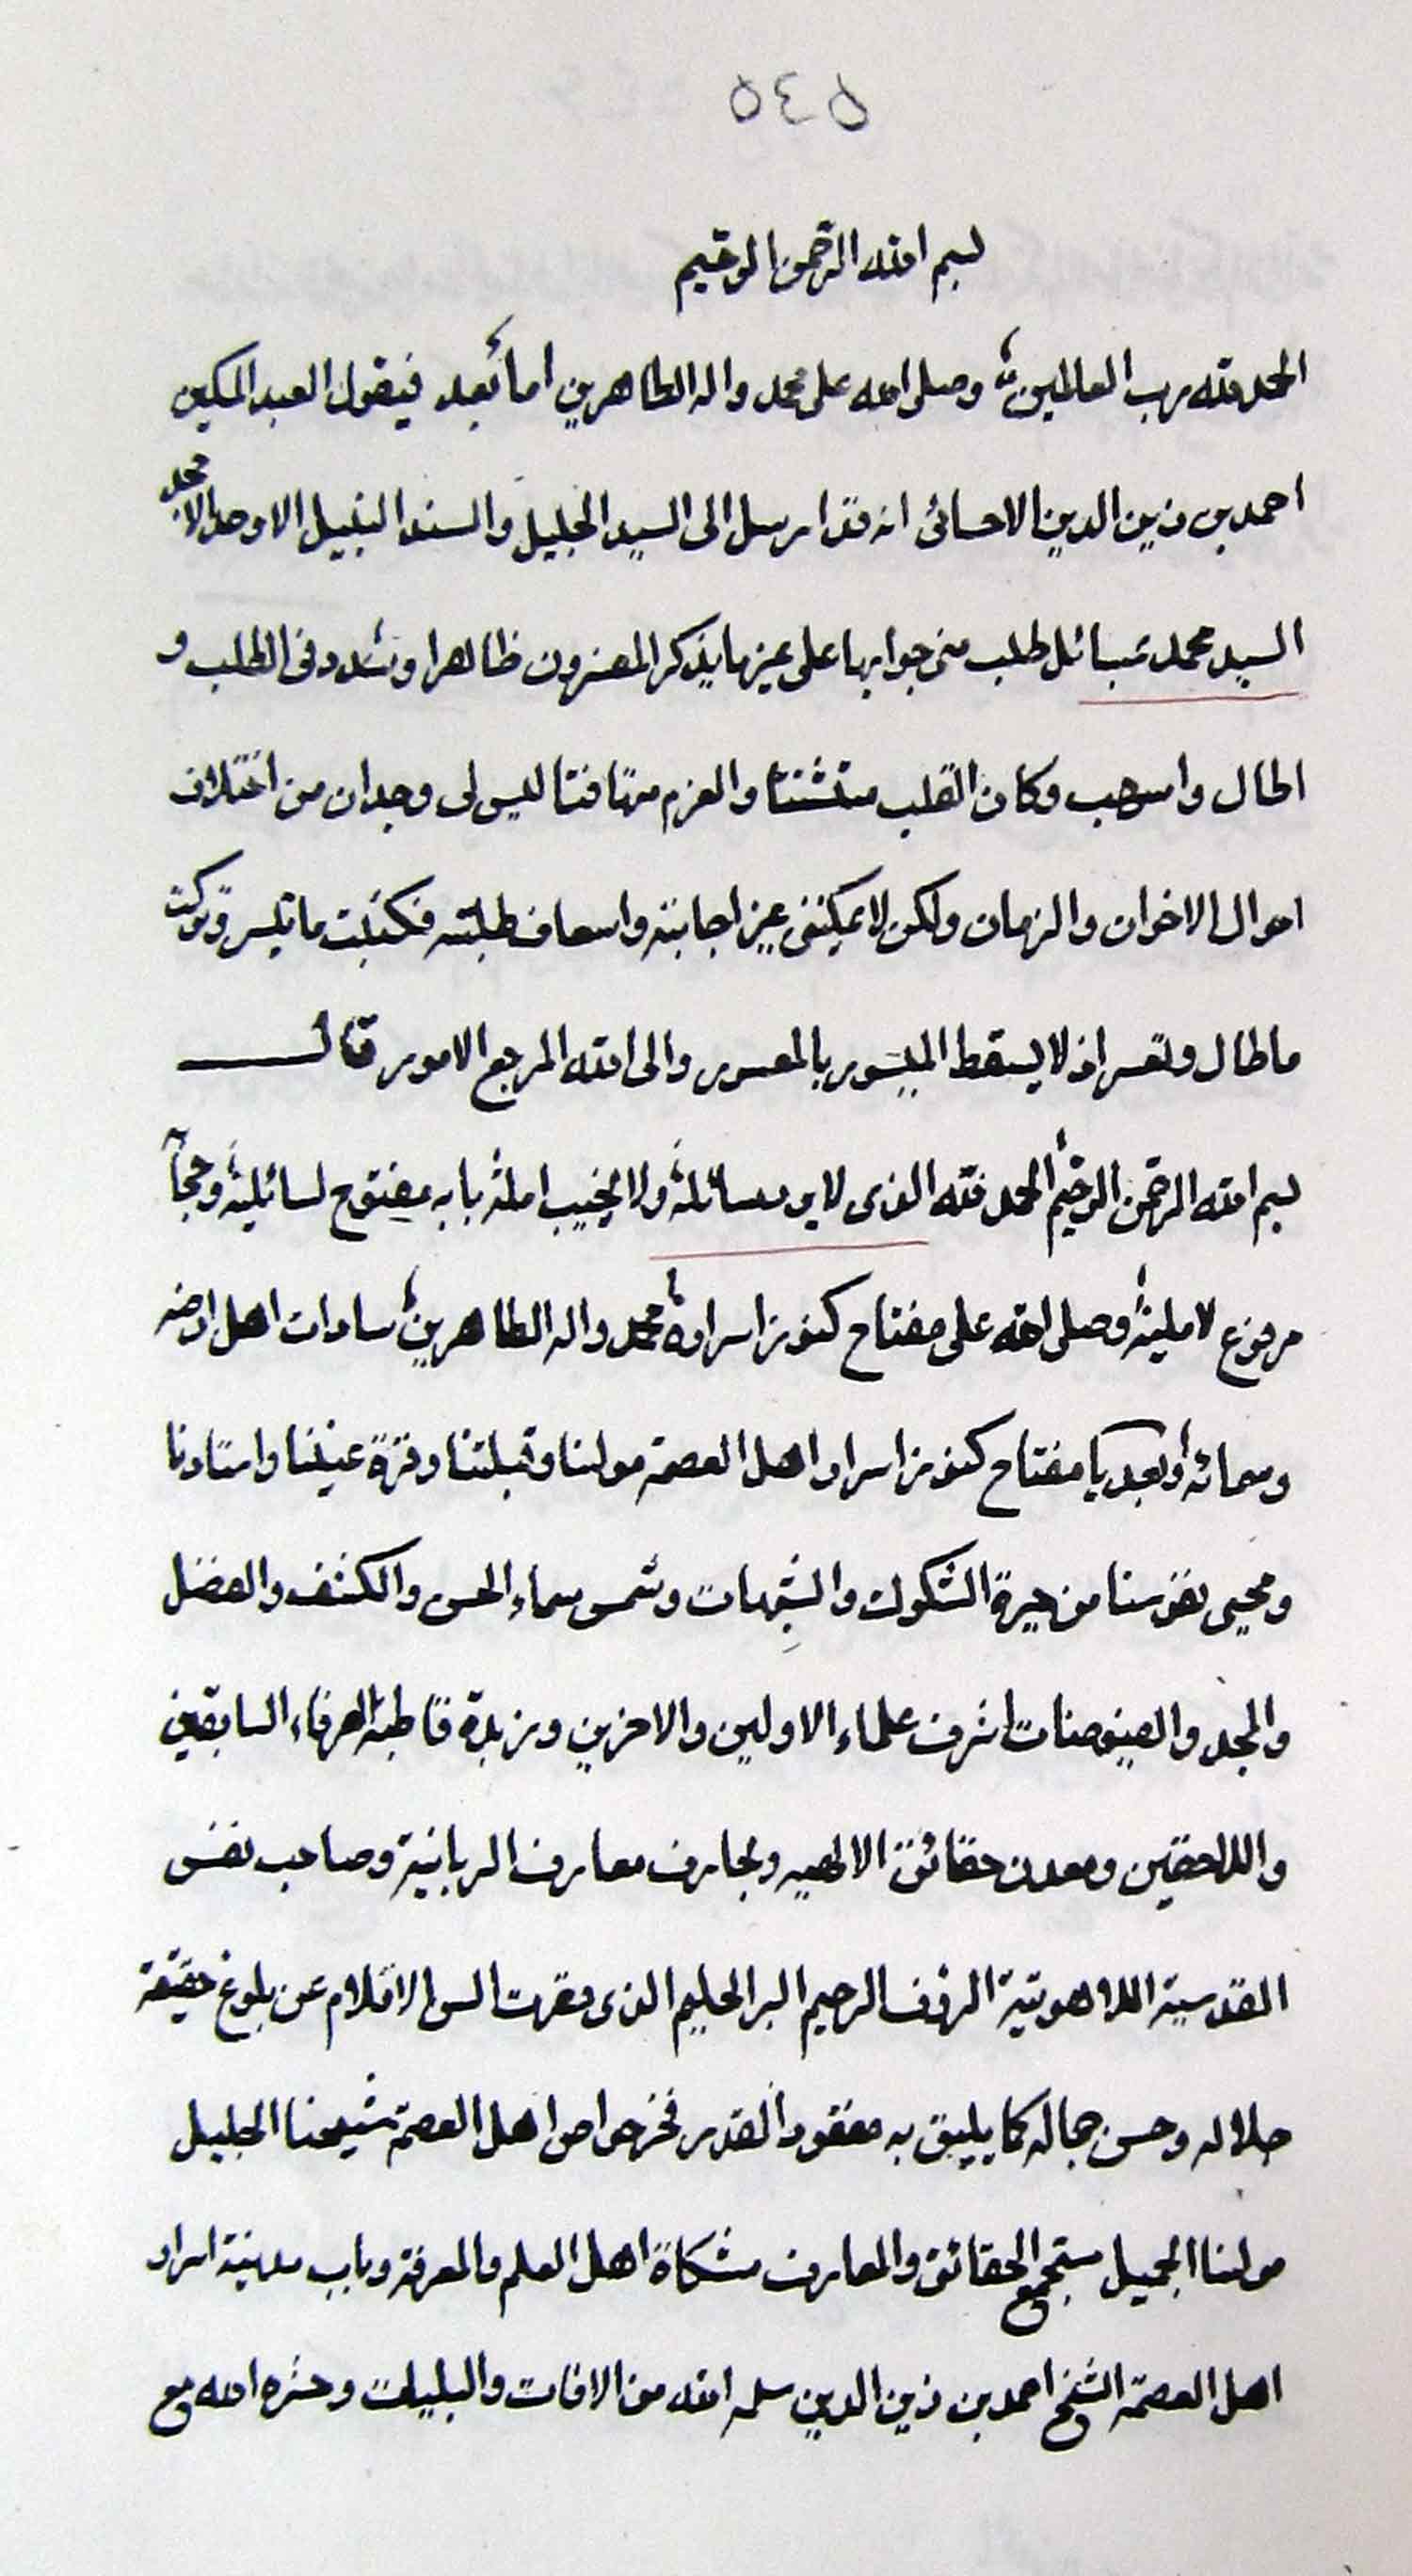 ٥٤٥
بسم الله الرحمن الرحيم
الحمد لله رب العالمين وصلى الله على محمد واله الطاهرين اما بعد فيقول العبد المسكين
احمد بن زين الدين الاحسائى انه قد ارسل الى السيد الجليل والسند النبيل الاوحد الامجد
السيد محمد بمسائل طلب منى جوابها على غير ما يذكر المفسرون ظاهرا وشدد فى الطلب و
اطال واسهب وكان القلب متشتتا والعزم متهافتا ليس لى وجدان من اختلاف
احوال الاخوان والزمان ولكن لا يمكننى غير اجابته واسعاف طلبته فكتبت ما تيسر وتركت
ما طال وتعسر اذ لا يسقط الميسور بالمعسور والى الله المرجع الامور قال
بسم الله الرحمن الرحيم الحمد لله الذى لا يرد سائله ولا يخيب امله بابه مفتوح لسائليه وحجابه
مرفوع لامليه وصلى الله على مفتاح كنوز اسراره محمد واله الطاهرين سادات اهل ارضه
وسمائه وبعد يا مفتاح كنوز اسرار اهل العصمة مولنا وقبلتنا وقرة عيننا واستادنا
ومحيى نفوسنا من حيرة الشكوك والشبهات وشمس سماء الحس والكشف والفضل
والمجد والفيوضات اشرف علماء الاولين والاخرين وزبدة قاطبة العرفاء السابقين
واللاحقين ومعدن حقائق الالهيه وبحار معارف الربانية وصاحب نفس
القدسية اللاهوتية الرؤف الرحيم البر الحليم الذى قصرت السن الاقلام عن بلوغ حقيقة
جلاله وحسن جماله كما يليق به مفقود القدر فخر خواص اهل العصمة شيخنا الجليل
مولنا الجميل مستجمع الحقائق والمعارف مشكاة اهل العلم والمعرفة وباب مدينة اسرار
اهل العصمة الشيخ احمد بن زين الدين سلمه الله من الافات والبليات وحشره الله مع